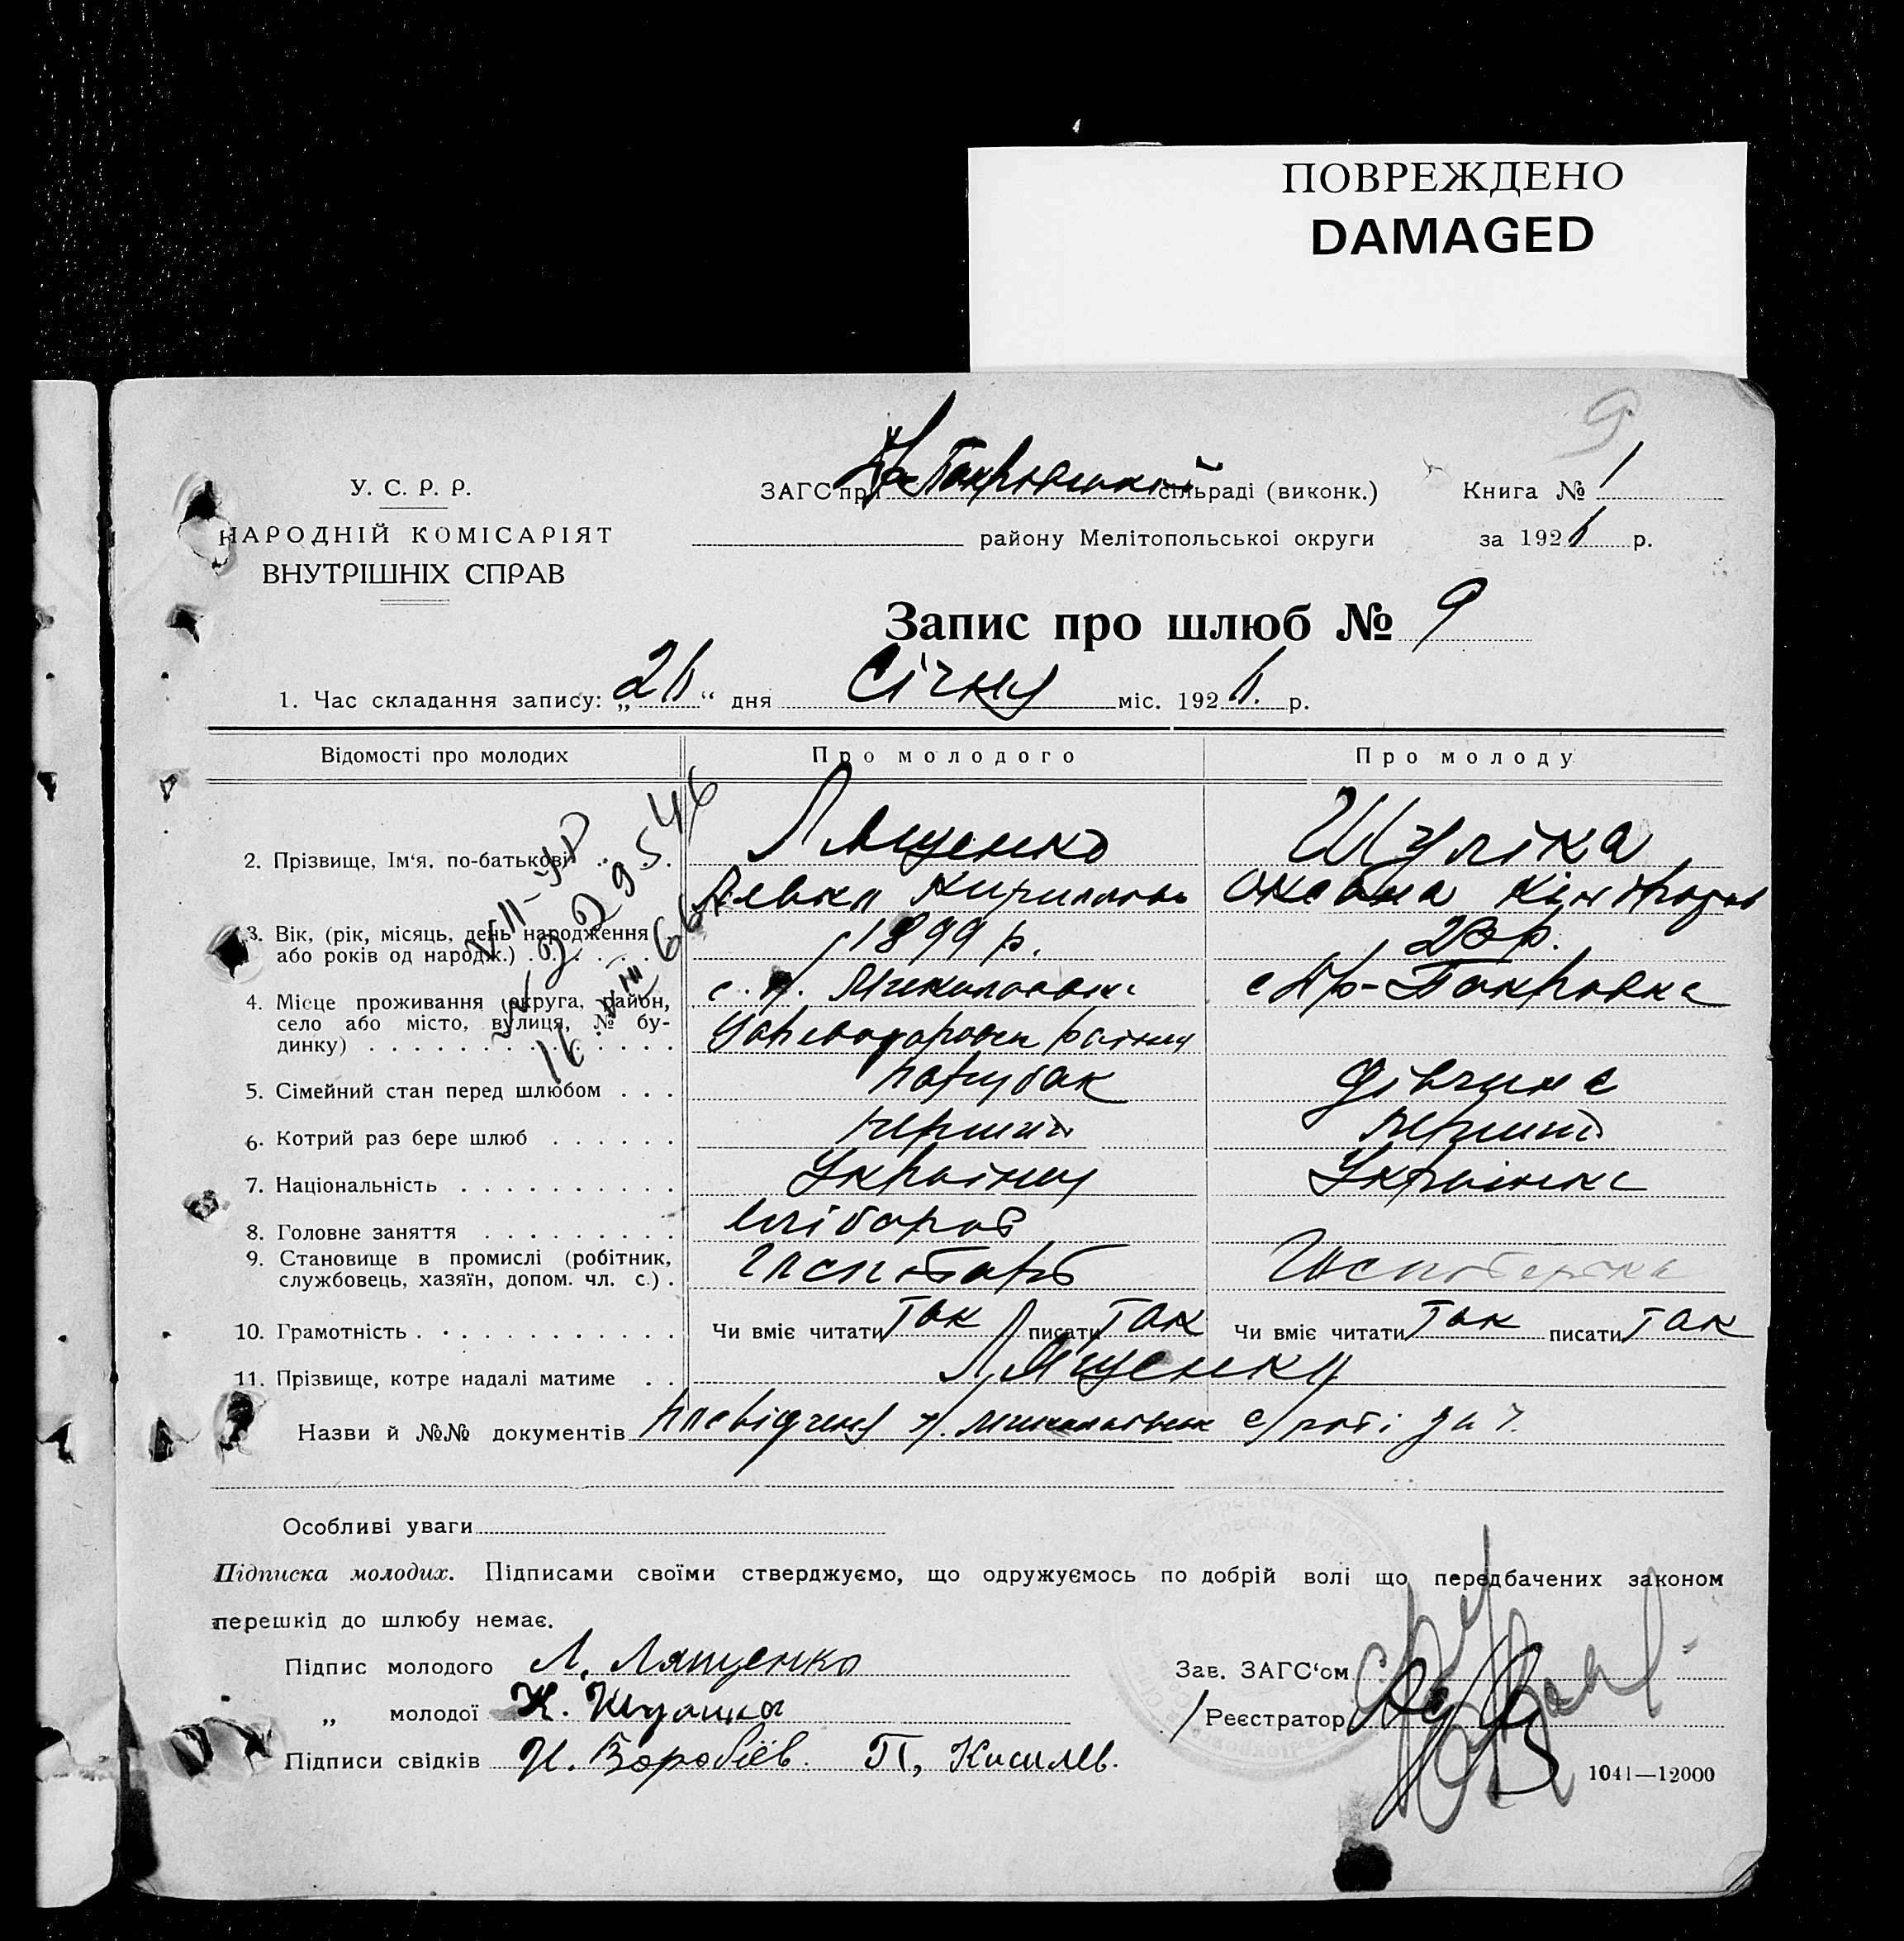 ПОВРЕЖДЕНО
DAMAGED
9
У. С. Р. Р.
НАРОДНІЙ КОМІСАРІЯТ
ВНУТРІШНІХ СПРАВ
ЗАГС при Покровській сільраді (виконк.)
району Мелітопольської округи
Книга № 1
за 1926 р.
Запис про шлюб № 9
1. Час складання запису: „26“ дня Січня міс. 1926. р.
Відомості про молодих Про молодого Про молоду
2. Прізвище, Ім‘я, по-батькові Лященко Шуліка
Кирилловъ Оксана
3. Вік, (рік, місяць, день народження 1899 р. 23 р.
або років од народж.)
4. Місце проживання (округа, район, с. Миколаівка с Пр-Покровка
село або місто, вулиця, № бу-
динку)
5. Сімейний стан перед шлюбом парубак дівчина
6. Котрий раз бере шлюб перший перший
7. Національність Україннц Українка
8. Головне заняття хлібороб
9. Становище в промислі (робітник, Господарь Господарка
службовець, хазяїн, допом. чл. с.)
10. Грамотність Чи вміє читати Так писати Так Чи вміє читати Так писати Так
11. Прізвище, котре надалі матиме Лященко
Назви й №№ документів
Особливі уваги
Підписка молодих. Підписами своїми стверджуємо, що одружуємось по добрій волі що передбачених законом
перешкід до шлюбу немає.
Підпис молодого Л. Лященко
„ молодої
Підписи свідків И. Воробіёв. П, Кисилев.
Зав. ЗАГС‘ом
Реєстратор
1041—12000